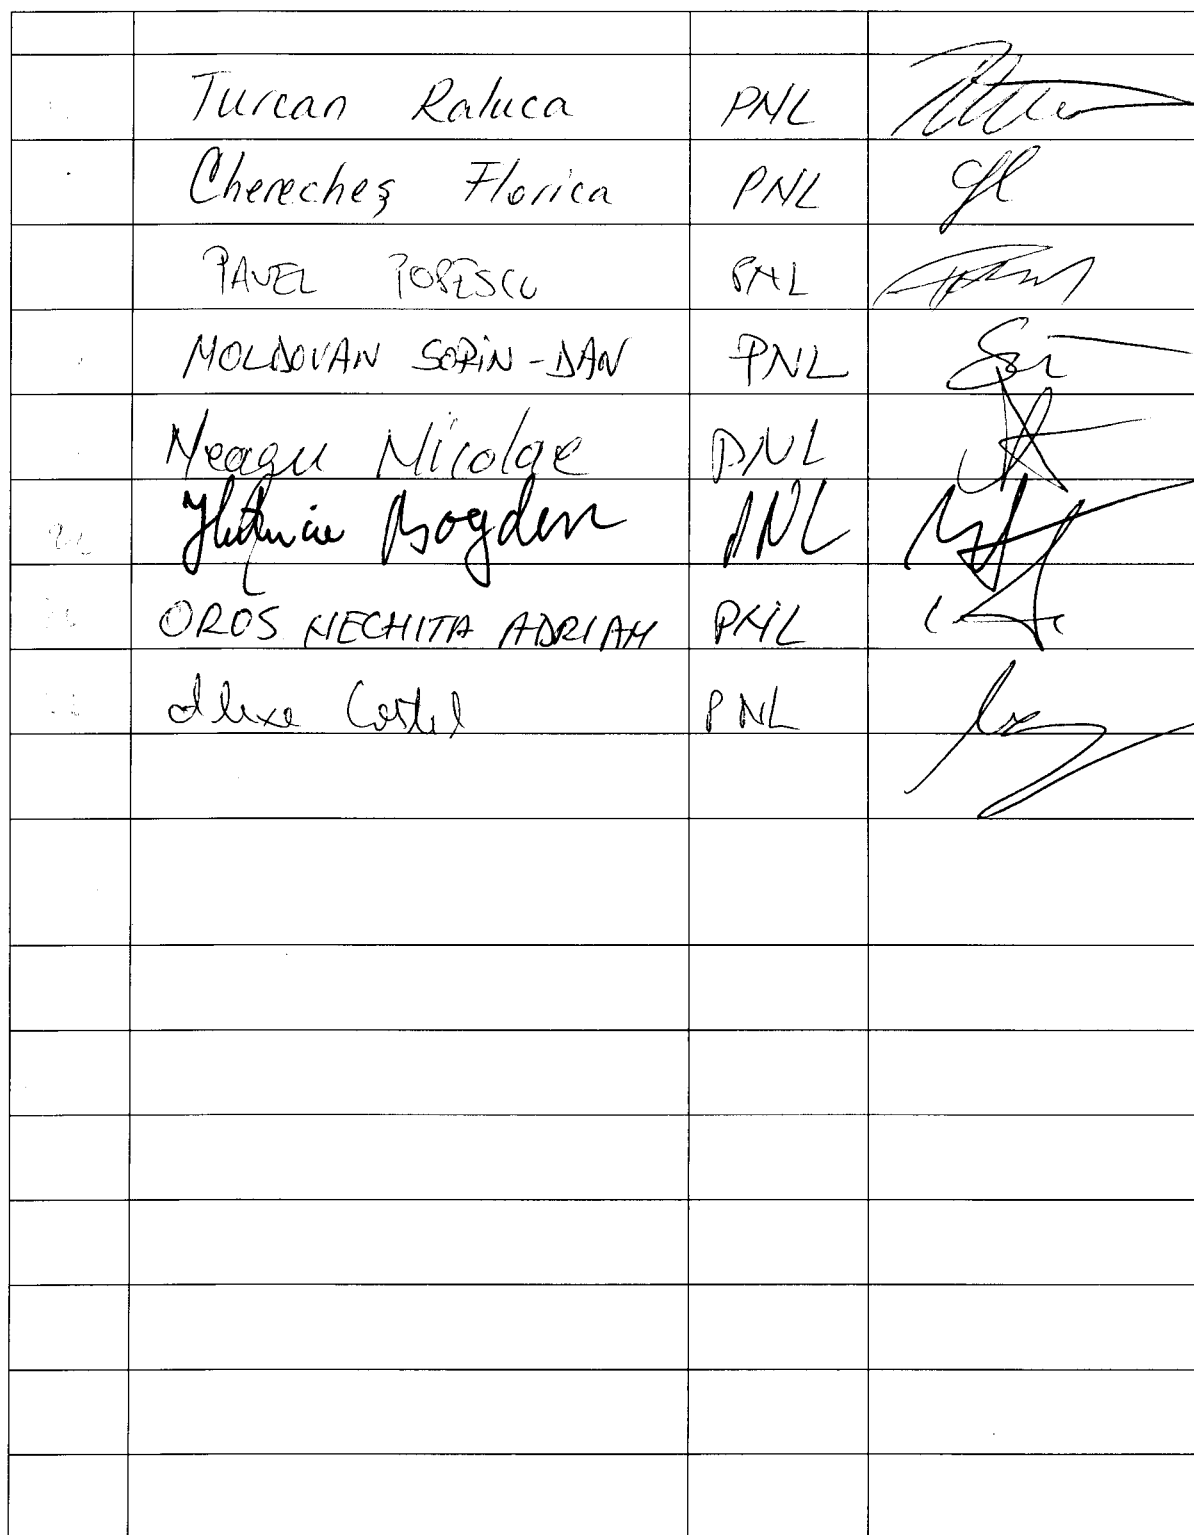 Turcan Raluca PNL
Cherecheş Florica PNL
PAVEL POPESCU PNL
MOLDOVAN SORIN-DAN PNL
Neagu Nicolae PNL
Bogdan PNL
OROS NECHITA ADRIAN PNL
Alexe Costel PNL